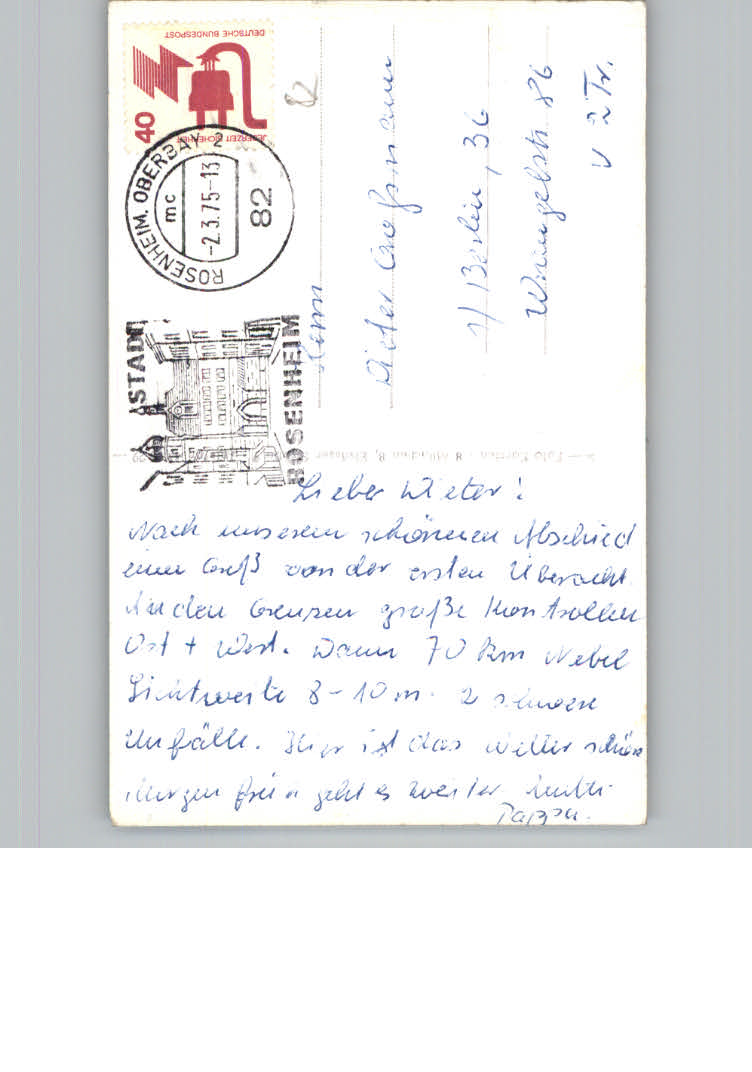 Lieber Dieter!
Nach unserem schönen Abschied
einen Gruß von der ersten Übernacht.
An den Grenzen große Kontrollen
Ost + West. Dann 70 km Nebel
Sichtweite 8-10 m. 2 schwere
Unfälle. Hier ist das Wetter schön
Morgen früh geht es weiter Mutti
Pappa.
Herrn
Dieter
1/ Berlin, 36
Wrangelstr. 86
v 2 Tr.
82
DEUTSCHE BUNDESPOST
JEDERZEIT SICHERHEIT
40
ROSENHEIM, OBERBAY 2
mc
-2.3.75-13
82
STADT
ROSENHEIM